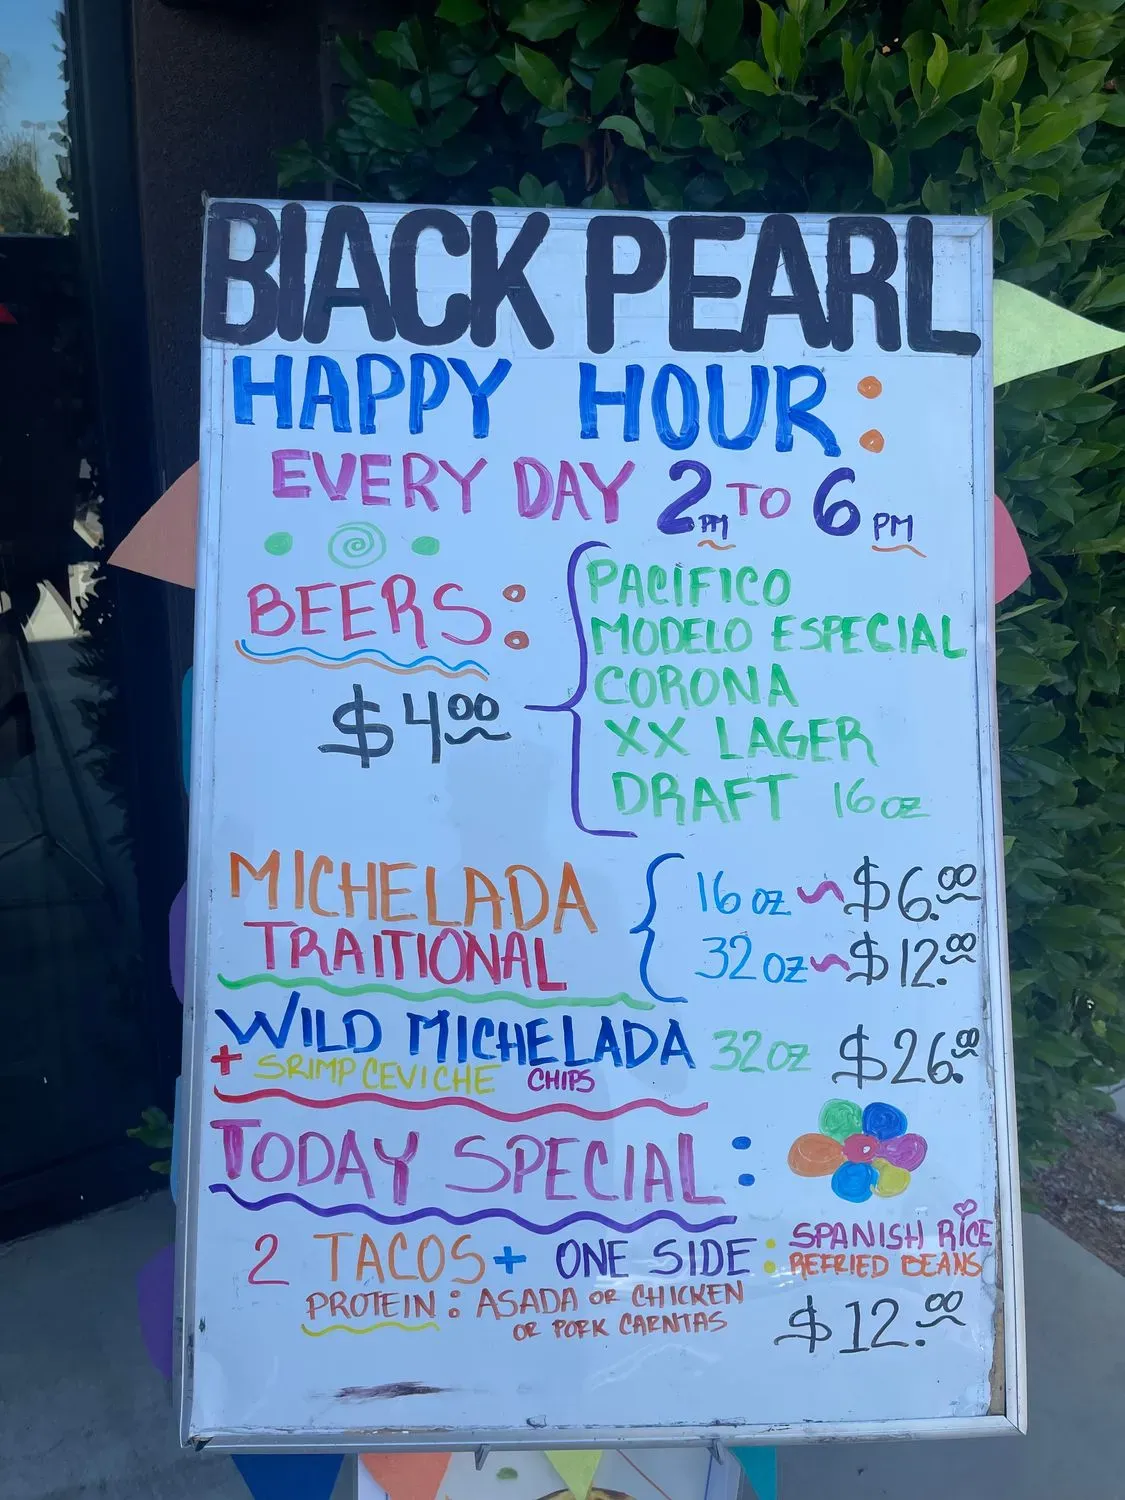 BlACK PEARL
HAPPY HOUR:
EVERY DAY 2PM TO 6PM
BEERS:
$4.00
PACÍFICO
MODELO ESPECIAL
CORONA
XX LAGER
DRAFT 16 oz
MICHELADA
TRAITIONAL
16 oz ~ $6.00
32 oz ~ $12.00
WILD MICHELADA 32 oz $26.00
+ SRIMP CEVICHE CHIPS
TODAY SPECIAL:
2 TACOS + ONE SIDE: SPANISH RICE
REFRIED BEANS
PROTEIN: ASADA OR CHICKEN
OR PORK CARNTAS
$12.00